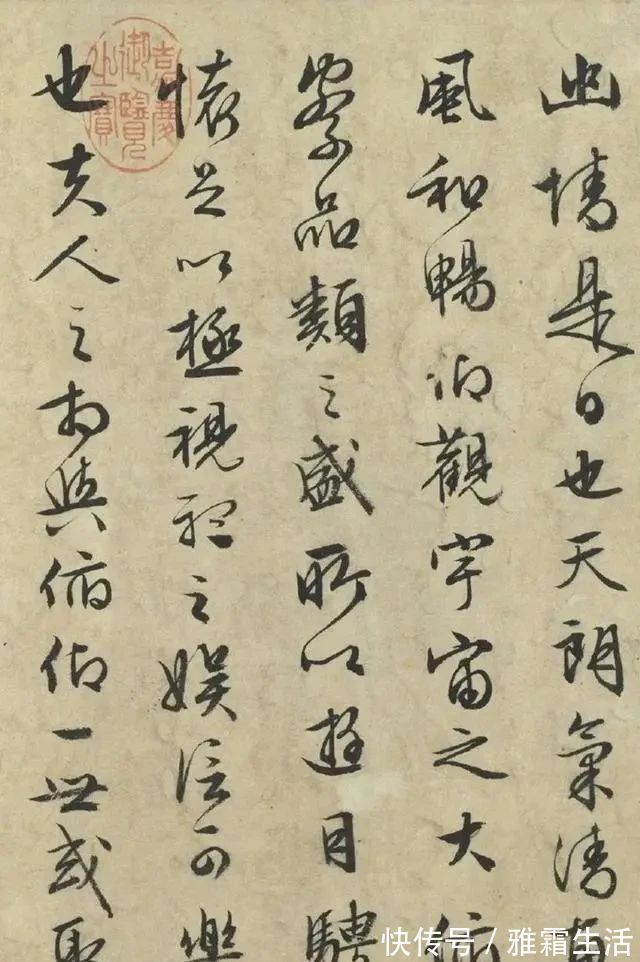 幽情是日也天朗氣清惠
風和暢仰觀宇宙之大俯
察品類之盛所以遊目騁
懷足以極視聽之娛信可樂
也夫人之相與俯仰一世或取
嘉慶御覽之寶
快传号/雅霜生活